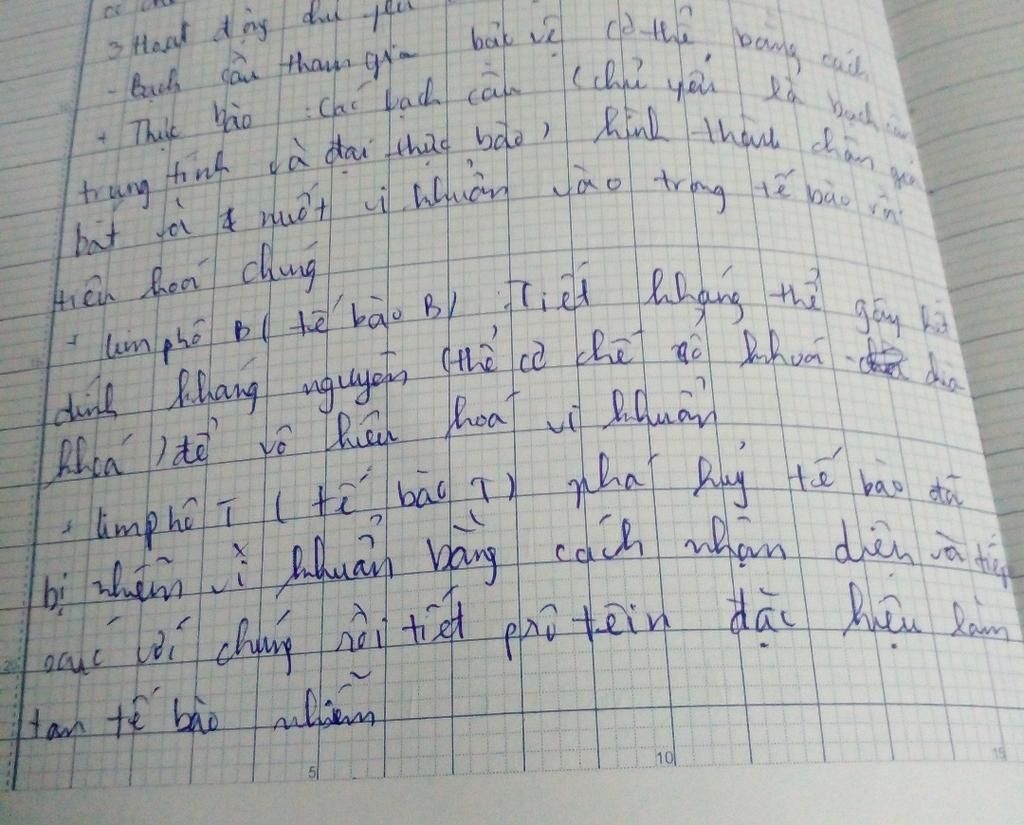 3 Hoạt động chủ yếu
- Bạch cầu tham gia bảo vệ cơ thể bằng cách
+ Thực bào : Các bạch cầu (chủ yếu là bạch cầu
trung tính và đại thực bào) hình thành chân giả
bắt và nuốt vi khuẩn vào trong tế bào rồi
tiêu hoá chúng
+ limphô B ( tế bào B) Tiết kháng thể gây kết
dính kháng nguyên (thể cơ chế ổ khoá chìa
khoá ) để vô hiệu hoá vi khuẩn
+ limphô T ( tế bào T) phá huỷ tế bào đã
bị nhiễm vi khuẩn bằng cách nhận diện và tiếp
xúc với chúng rồi tiết prôtêin đặc hiệu làm
tan tế bào nhiễm
5 10 15
20